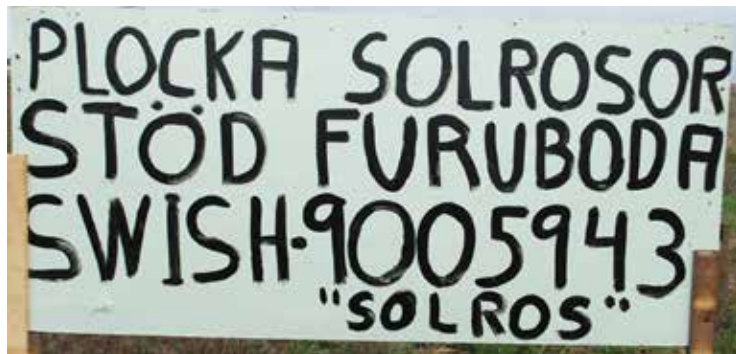 PLOCKA SOLROSOR
STÖD FURUBODA
SWISH·9005943
"SOLROS"